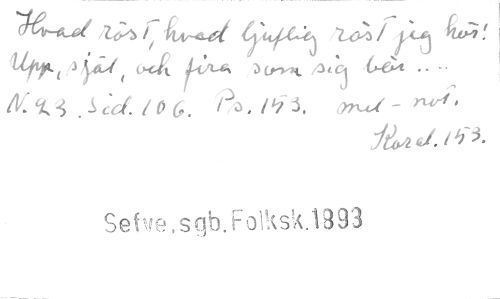 Hvad röst, hvad ljuflig röst jag hör!
Upp, själ, och fira som sig bör....
N. 23. Sid. 106. Ps. 153. mel-not.
Koral. 153.
Sefve, sgb. Folksk. 1893